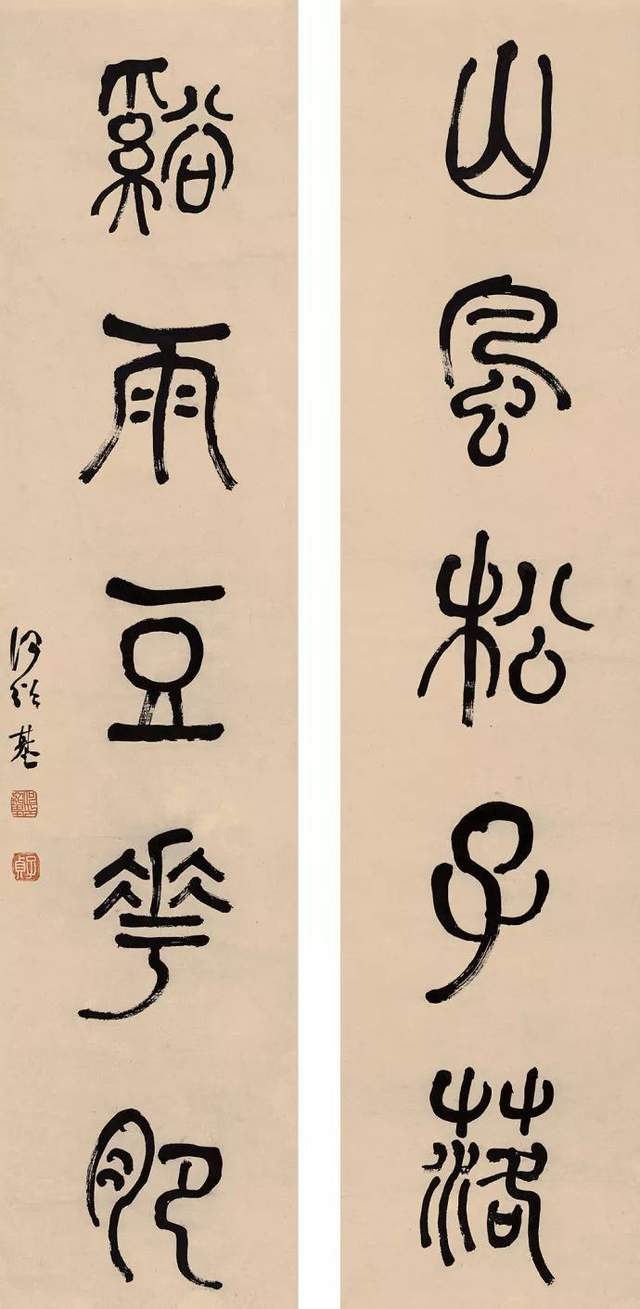 山風松子落
谿雨豆花肥
何紹基
子貞